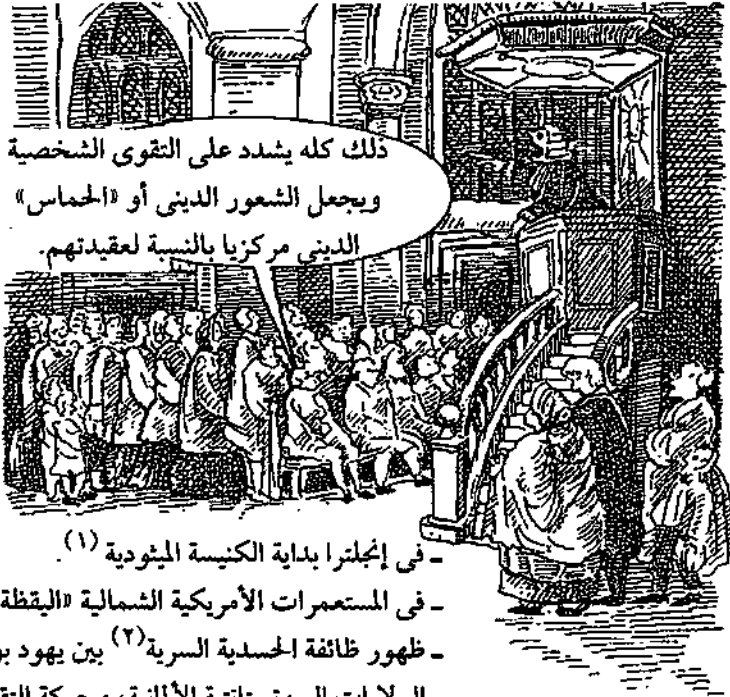 ذلك كله يشدد على التقوى الشخصية
ويجعل الشعور الدينى أو «الحماس»
الدينى مركزيا بالنسبة لعقيدتهم.
ـ فى إنجلترا بداية الكنيسة الميثودية (١).
ـ فى المستعمرات الأمريكية الشمالية «اليقظة
ـ ظهور طائفة الحسدية السرية(٢) بين يهود